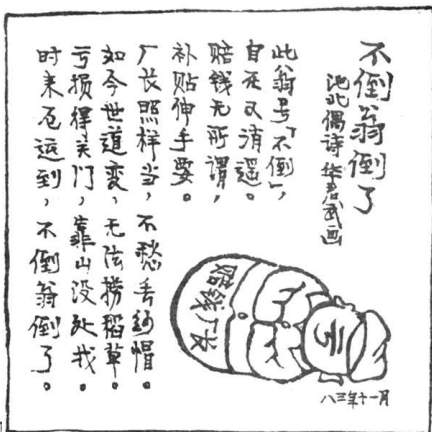 不倒翁倒了
池北偶诗 华君武画
此翁号「不倒」，
自在又消遥。
赔钱无所谓，
补贴伸手要。
厂长照样当，不愁丢纱帽。
如今世道变，无法捞稻草。
亏损得关门，靠山没处找。
时来厄运到，不倒翁倒了。
赔钱厂长
八三年十一月